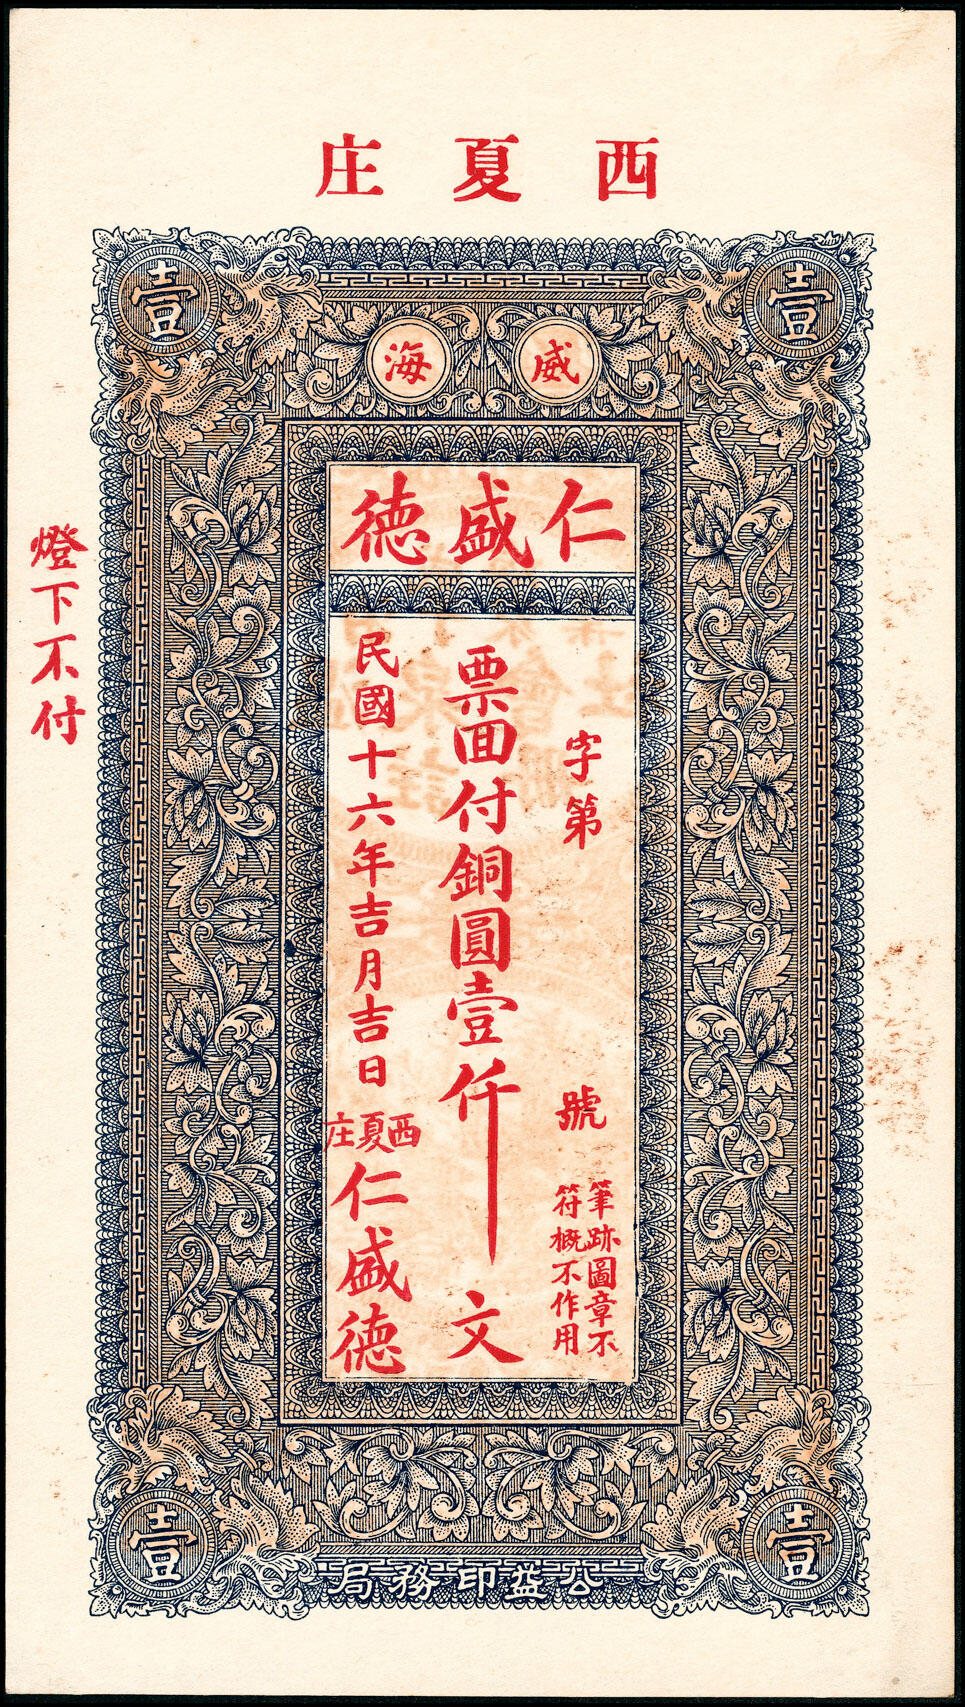 西夏庄
壹
壹
威海
仁盛德
字第
號
筆跡圖章不
符概不作用
票面付銅圓壹仟文
民國十六年吉月吉日
西夏庄
仁盛德
燈下不付
壹
壹
公益印務局